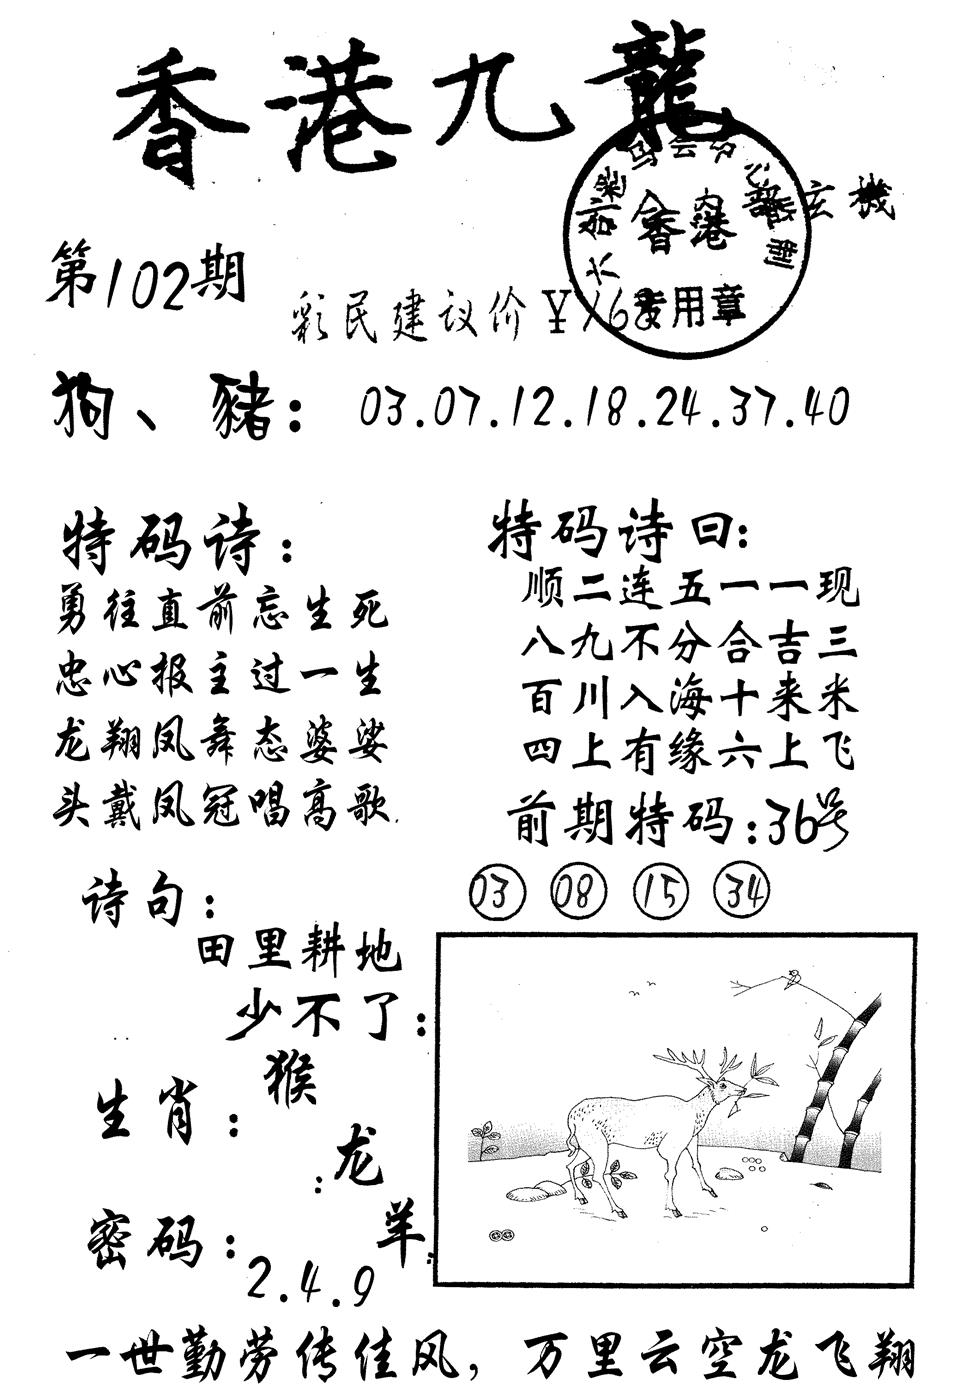 香港九龍
玄機
香港
专用章
第102期
彩民建议价￥168
狗、豬：03.07.12.18.24.37.40
特码诗：
勇往直前忘生死
忠心报主过一生
龙翔凤舞态婆娑
头戴凤冠唱高歌
特码诗曰：
顺二连五一一现
八九不分合吉三
百川入海十来米
四上有缘六上飞
前期特码：36号
03 08 15 34
诗句：
田里耕地
少不了：
生肖：猴
：龙
羊：
密码：
2.4.9
一世勤劳传佳风，万里云空龙飞翔